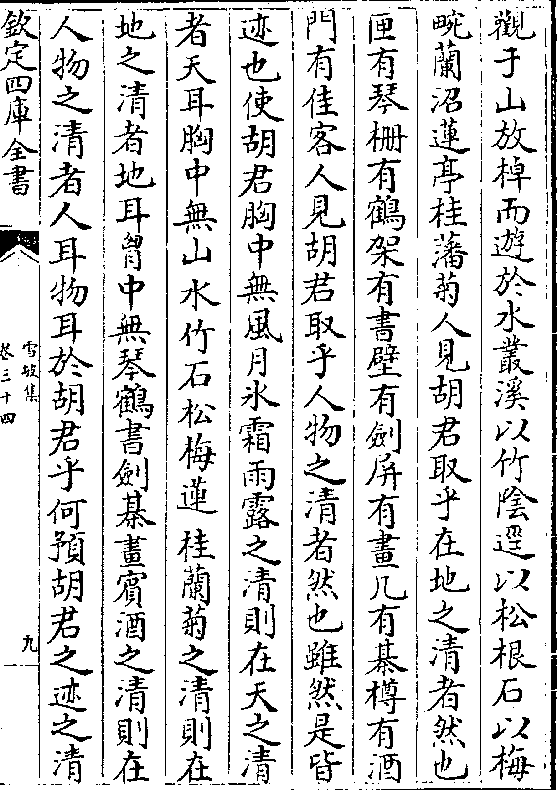 觀于山放棹而遊於水叢溪以竹陰逕以松根石以梅
畹蘭沼蓮亭桂藩菊人見胡君取乎在地之清者然也
匣有琴柵有鶴架有書壁有劍屏有畫几有棊樽有酒
門有佳客人見胡君取乎人物之清者然也雖然是皆
迹也使胡君胸中無風月氷霜雨露之清則在天之清
者天耳胸中無山水竹石松梅蓮桂蘭菊之清則在
地之清者地耳胷中無琴鶴書劍棊畫賓酒之清則在
人物之清者人耳物耳於胡君乎何預胡君之迹之清
欽定四庫全書
雪坡集
卷三十四
九